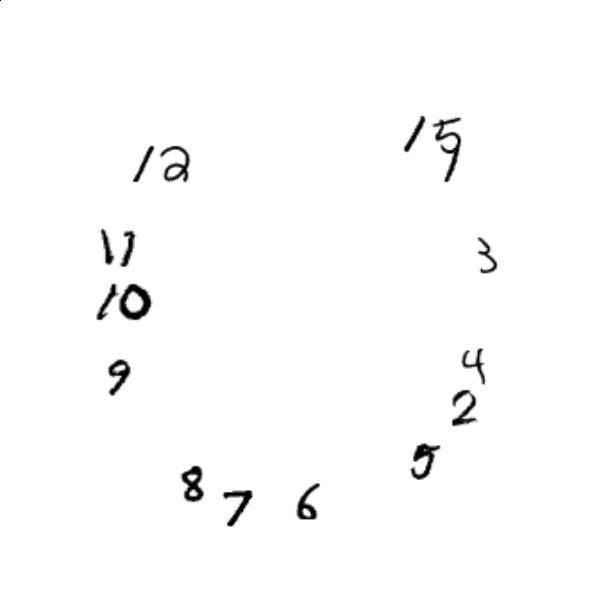 12
15
11
3
10
4
9
2
5
8
7
6